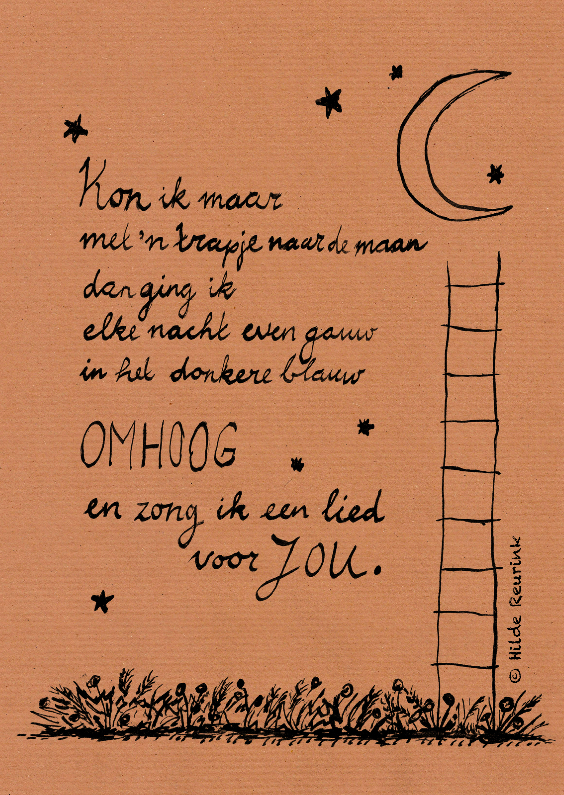 Kon ik maar
met 'n trapje naar de maan
dan ging ik
elke nacht even gauw
in het donkere blauw
OMHOOG
en zong ik een lied
voor JOU.
© Hilde Reurink